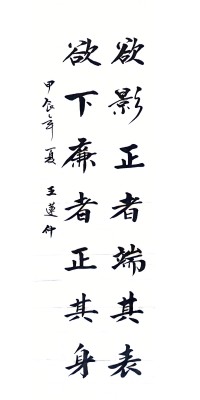 欲影正者端其表
欲下廉者正其身
甲辰年夏 王莲仲